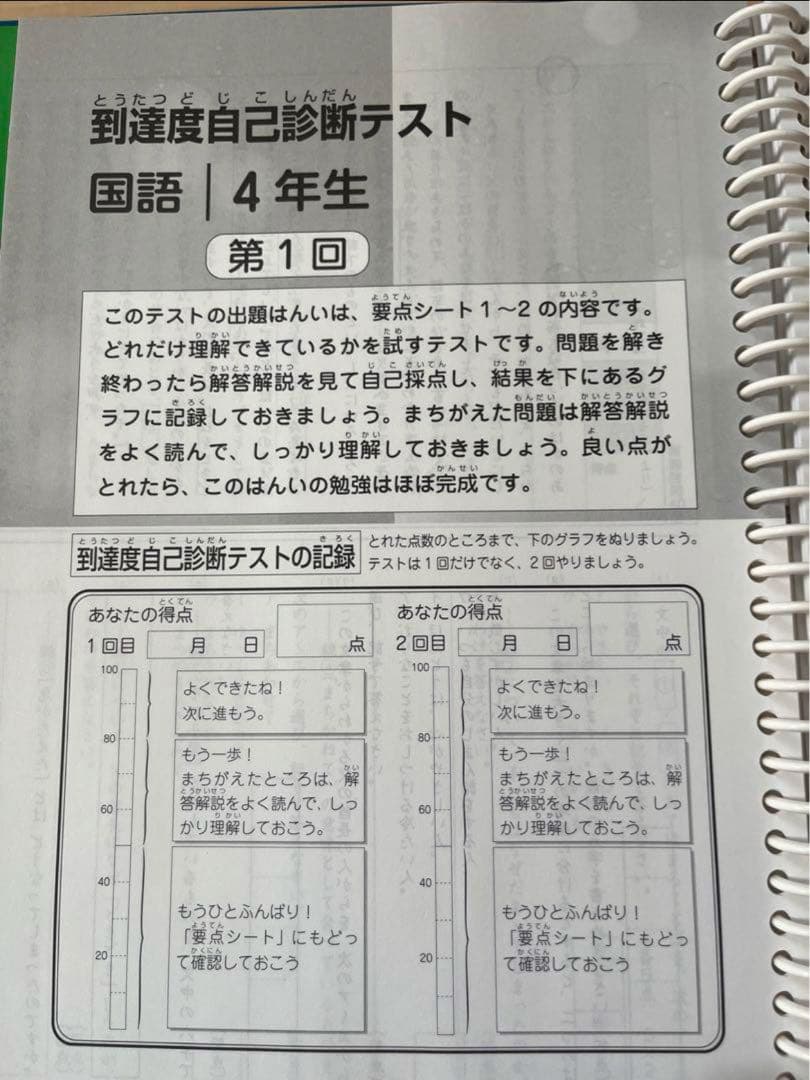 到達度自己診断テスト
国語｜4年生
第1回
このテストの出題はんいは、要点シート1～2の内容です。
どれだけ理解できているかを試すテストです。問題を解き
終わったら解答解説を見て自己採点し、結果を下にあるグ
ラフに記録しておきましょう。まちがえた問題は解答解説
をよく読んで、しっかり理解しておきましょう。良い点が
とれたら、このはんいの勉強はほぼ完成です。
到達度自己診断テストの記録
とれた点数のところまで、下のグラフをぬりましょう。
テストは1回だけでなく、2回やりましょう。
あなたの得点
1回目 月 日 点
100
80
60
40
20
よくできたね！
次に進もう。
もう一歩！
まちがえたところは、解
答解説をよく読んで、しっ
かり理解しておこう。
もうひとふんばり！
「要点シート」にもどっ
て確認しておこう
あなたの得点
2回目 月 日 点
100
80
60
40
20
よくできたね！
次に進もう。
もう一歩！
まちがえたところは、解
答解説をよく読んで、しっ
かり理解しておこう。
もうひとふんばり！
「要点シート」にもどっ
て確認しておこう